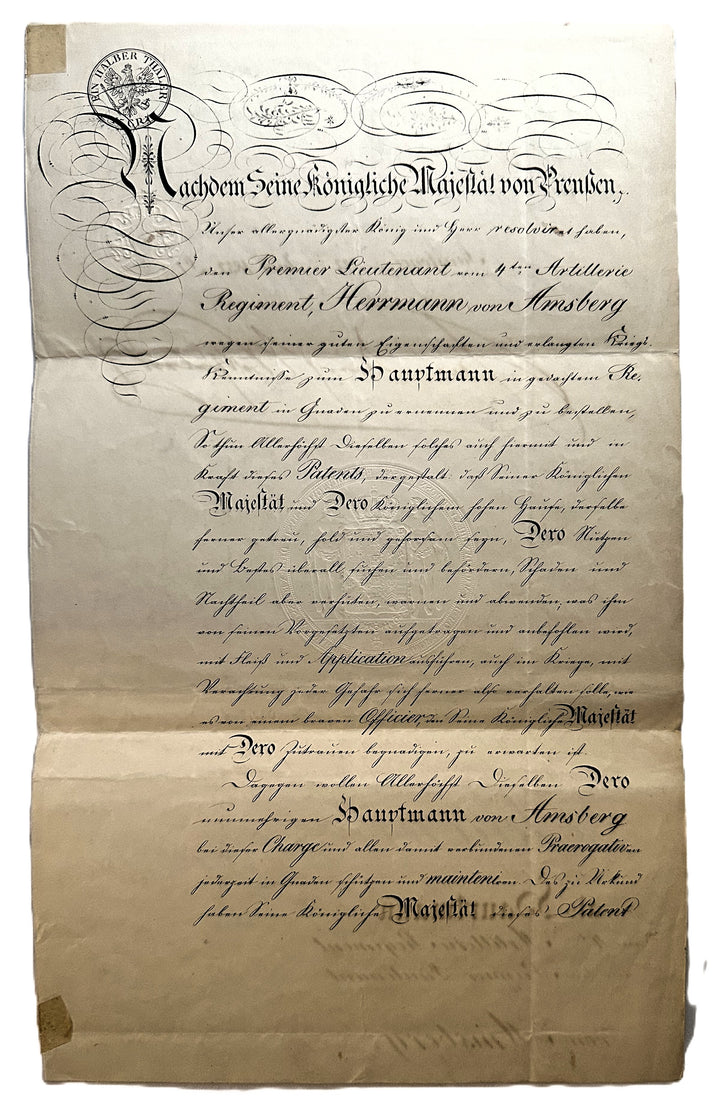 EIN HALBER THALER
Nachdem Seine Königliche Majestät von Preußen,
Unser allergnädigster König und Herr resolviret haben,
den Premier Lieutenant vom 4ten Artillerie
Regiment, Herrmann von Amsberg
wegen seiner guten Eigenschaften und erlangten Kriegs-
Kenntnisse zum Hauptmann in gedachtem Re-
giment in Gnaden zu ernennen und zu bestellen,
So thun Allerhöchst Dieselben solches auch hiermit und in
Kraft dieses Patents, dergestalt: daß Seiner Königlichen
Majestät und Dero Königlichem hohen Hause, derselbe
ferner getreu, hold und gehorsam seyn, Dero Nutzen
und Bestes überall suchen und befördern, Schaden und
Nachtheil aber verhüten, warnen und abwenden, was ihm
von seinen Vorgesetzten aufgetragen und anbefohlen wird,
mit Fleiß und Application ausführen, auch im Kriege, mit
Verachtung jeder Gefahr sich ferner also verhalten solle, wie
es von einem braven Officier, den Seine Königliche Majestät
mit Dero Zutrauen begnadigen, zu erwarten ist.
Dagegen wollen Allerhöchst Dieselben Dero
nunmehrigen Hauptmann von Amsberg
bei dieser Charge und allen damit verbundenen Praerogativen
jederzeit in Gnaden schützen und mainteniren. Des zu Urkund
haben Seine Königliche Majestät dieses Patent